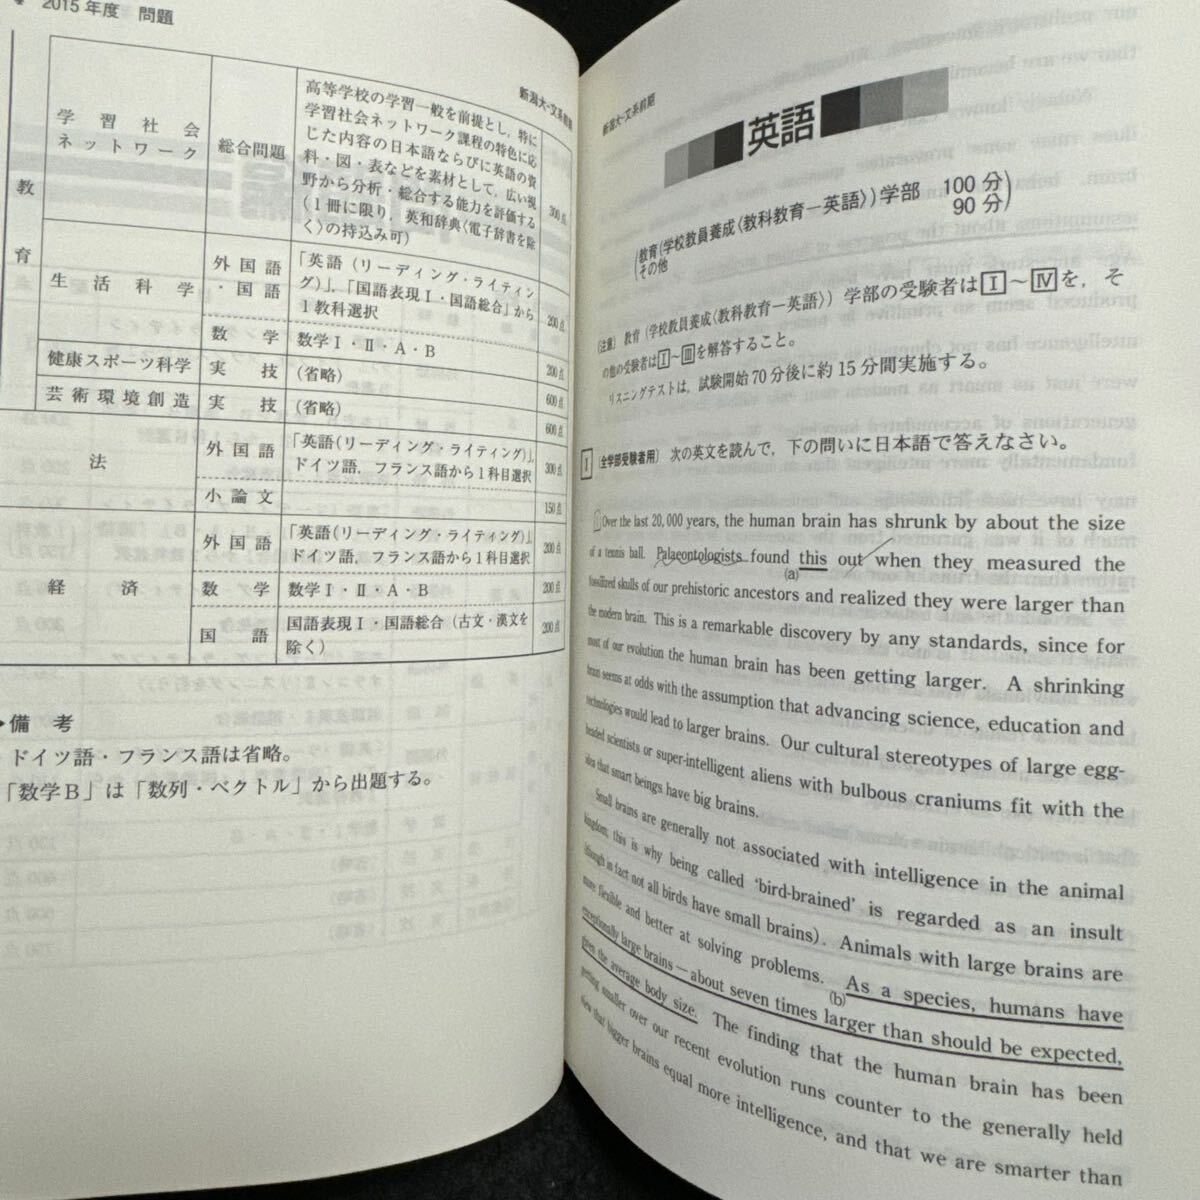 2015年度 問題
新潟大-文系前期
教育
学習社会ネットワーク
総合問題
高等学校の学習一般を前提とし，特に
学習社会ネットワーク課程の特色に応
じた内容の日本語ならびに英語の資
料・図・表などを素材として，広い視
野から分析・総合する能力を評価する
（1冊に限り，英和辞典〈電子辞書を除
く〉の持込み可）
300点
生活科学
外国語・国語
「英語（リーディング・ライティン
グ）」，「国語表現Ⅰ・国語総合」から
1教科選択
200点
数学
数学Ⅰ・Ⅱ・A・B
200点
健康スポーツ科学
実技
（省略）
600点
芸術環境創造
実技
（省略）
600点
法
外国語
「英語（リーディング・ライティング）」，
ドイツ語，フランス語から1科目選択
300点
小論文
150点
経済
外国語
「英語（リーディング・ライティング）」，
ドイツ語，フランス語から1科目選択
200点
数学
数学Ⅰ・Ⅱ・A・B
200点
国語
国語表現Ⅰ・国語総合（古文・漢文を
除く）
200点
備考
ドイツ語・フランス語は省略。
「数学B」は「数列・ベクトル」から出題する。
新潟大-文系前期
英語
（教育（学校教員養成〈教科教育－英語〉）学部 100分
その他 90分）
（注意） 教育（学校教員養成〈教科教育－英語〉）学部の受験者はⅠ～Ⅳを，そ
の他の受験者はⅠ～Ⅲを解答すること。
リスニングテストは，試験開始70分後に約15分間実施する。
Ⅰ （全学部受験者用） 次の英文を読んで，下の問いに日本語で答えなさい。
Over the last 20,000 years, the human brain has shrunk by about the size
of a tennis ball. Palaeontologists found this out when they measured the
(a)
fossilized skulls of our prehistoric ancestors and realized they were larger than
the modern brain. This is a remarkable discovery by any standards, since for
most of our evolution the human brain has been getting larger. A shrinking
brain seems at odds with the assumption that advancing science, education and
technologies would lead to larger brains. Our cultural stereotypes of large egg-
headed scientists or super-intelligent aliens with bulbous craniums fit with the
idea that smart beings have big brains.
Small brains are generally not associated with intelligence in the animal
kingdom; this is why being called ‘bird-brained’ is regarded as an insult
(although in fact not all birds have small brains). Animals with large brains are
more flexible and better at solving problems. As a species, humans have
(b)
exceptionally large brains — about seven times larger than should be expected,
given the average body size. The finding that the human brain has been
getting smaller over our recent evolution runs counter to the generally held
view that bigger brains equal more intelligence, and that we are smarter than